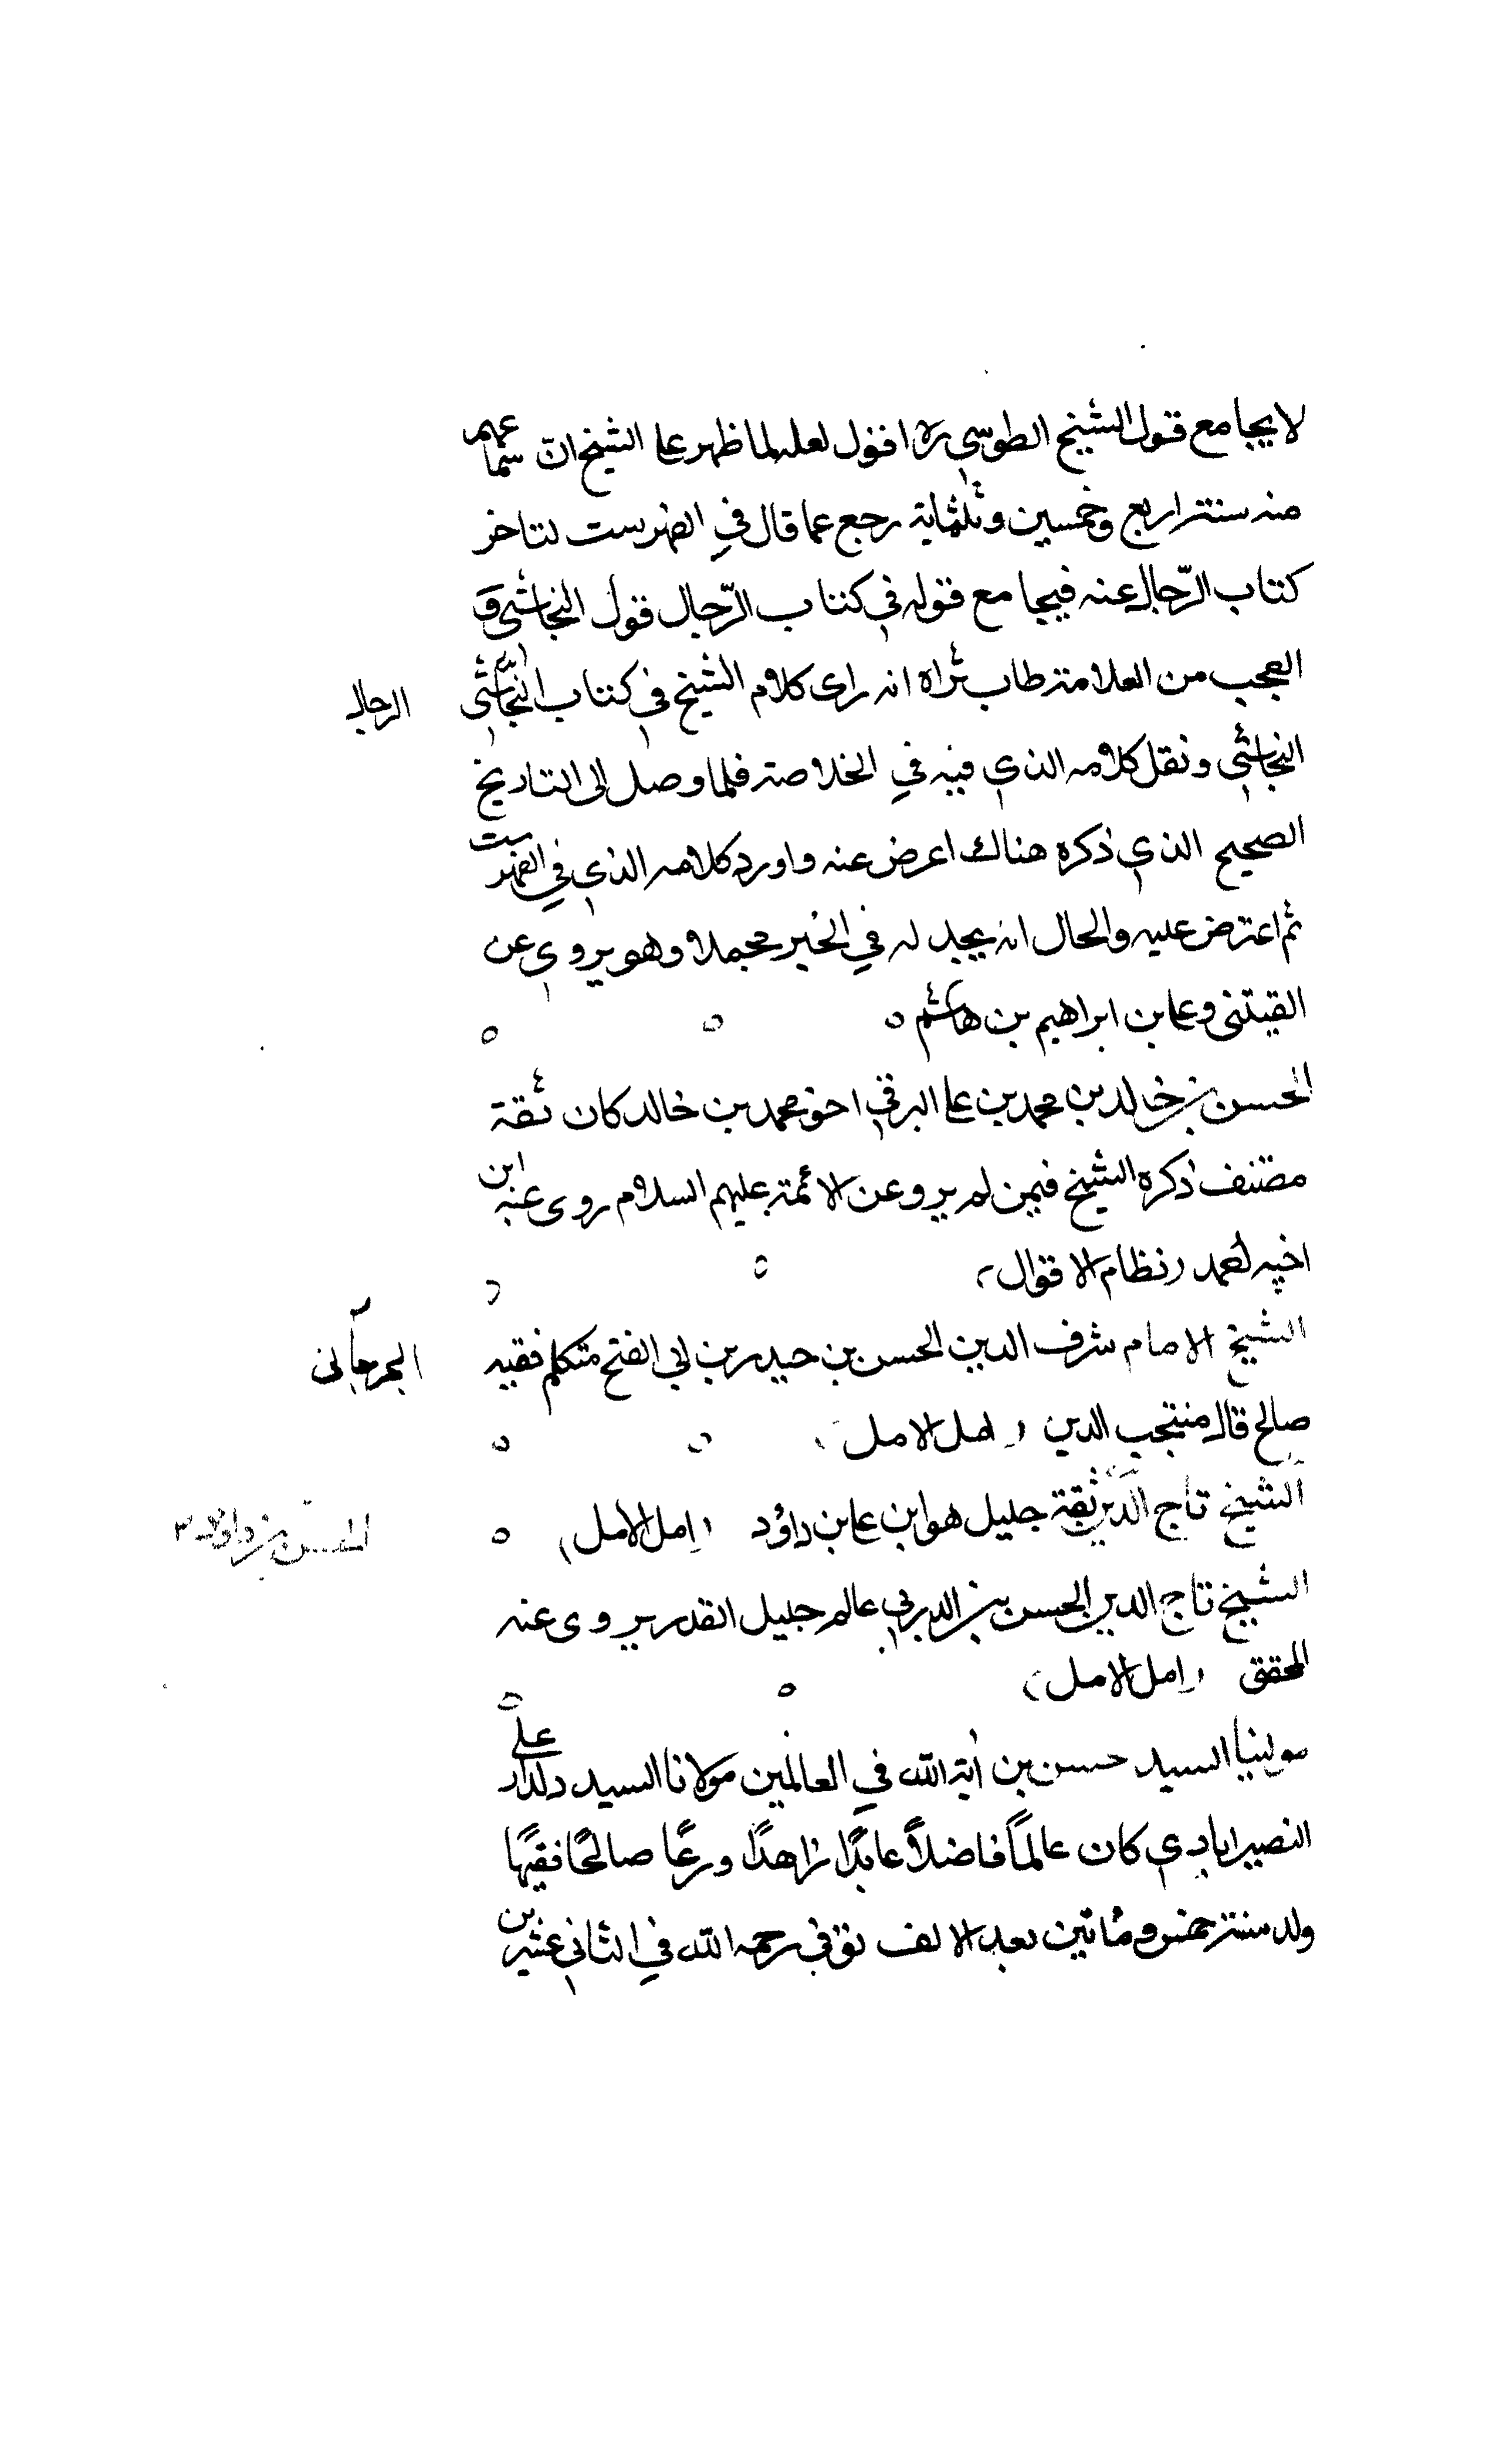 لا يجامع قول الشيخ الطوسي ره اقول لعله لما ظهر على الشيخ ان سماعهم
منه سنة اربع وخمسين وثلثماية رجع عما قال في الفهرست لتاخر
كتاب الرّجال عنه فيجامع قوله في كتاب الرّجال قول النجاشي و
العجب من العلامة طاب ثراه انه راى كلام الشيخ في كتاب النجاشي
الرجال
النجاشي ونقل كلامه الذي فيه في الخلاصة فلما وصل الى التاريخ
الصحيح الذي ذكره هناك اعرض عنه واورد كلامه الذي في الفهرست
ثم اعترض عليه والحال انه يجد له في الخبر محملا وهو يروي عن
القتيبي وعلى بن ابراهيم بن هاشم
الحسن بن خالد بن محمد بن على البرقي اخو محمد بن خالد كان ثقة
مصنف ذكره الشيخ فيمن لم يرو عن الائمة عليهم السلام روى عنه ابن
اخيه احمد (نظام الاقوال)
الشيخ الامام شرف الدين الحسن بن حيدر بن ابي الفتح متكلم فقيه
الجرجاني
صالح قال منتجب الدين (امل الامل)
الشيخ تاج الدين ثقة جليل هو ابن على بن داؤد (امل الامل)
الحسن بن داود
الشيخ تاج الدين الحسن بن الدربي عالم جليل القدر يروى عنه
المحقق (امل الامل)
مولينا السيد حسن بن اٰية الله في العالمين مولانا السيد دلدار على
النصيرابادي كان عالمًا فاضلاً عابدًا زاهدًا ورعًا صالحًا فقيهًا
ولد سنة خمس و مأتين بعد الالف توفى رحمه الله في الثاني عشر من